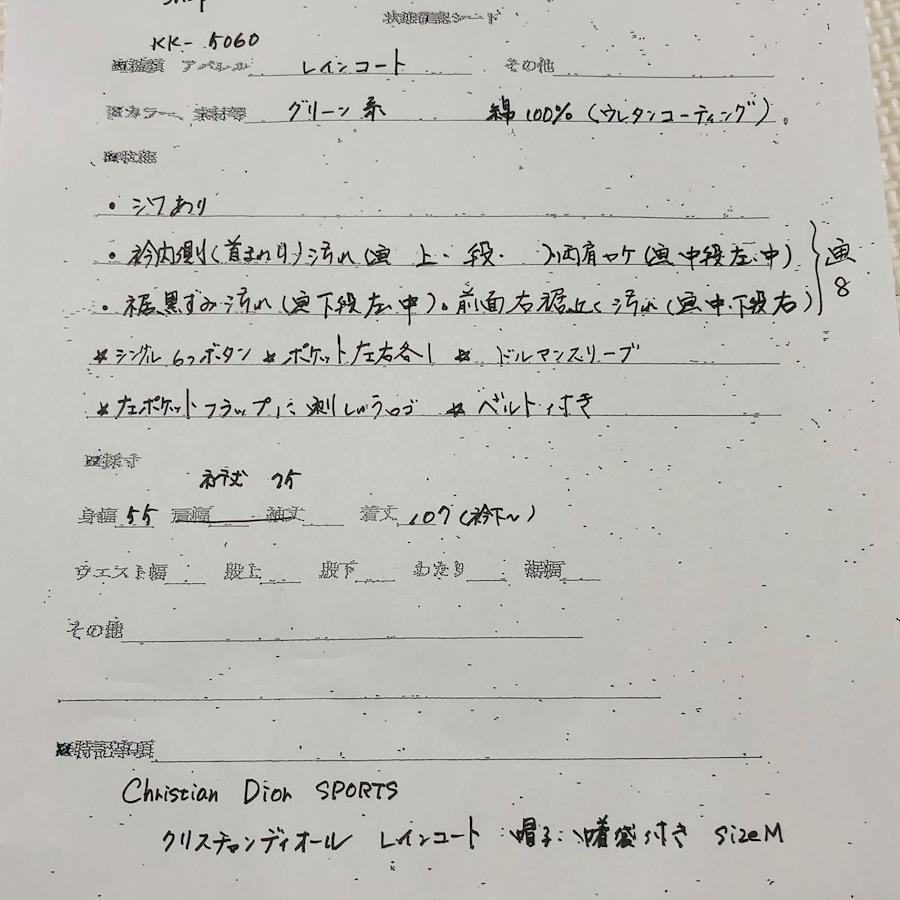 状態確認シート
KK-5060
■種類 アパレル レインコート その他
■カラー、素材等 グリーン系 綿100%(ウレタンコーティング)。
■状態
・シワあり
・衿内側(首まわり)汚れ(画 上・段・ 両肩ヤケ(画中段左・中)
・裾黒ずみ汚れ(画下段左・中)。前面右裾近く汚れ(画中・下段右) 画8
★シングル6つボタン ★ポケット左右各1 ★ドルマンスリーブ
★左ポケットフラップに刺しゅうロゴ ★ベルト付き
■採寸
裄丈 75
身幅 55 肩幅 袖丈 着丈 107(衿下~)
ウエスト幅 股上 股下 わたり 裾幅
その他
■特記事項
Christian Dior SPORTS
クリスチャンディオール レインコート 帽子・ 袋付き sizeM